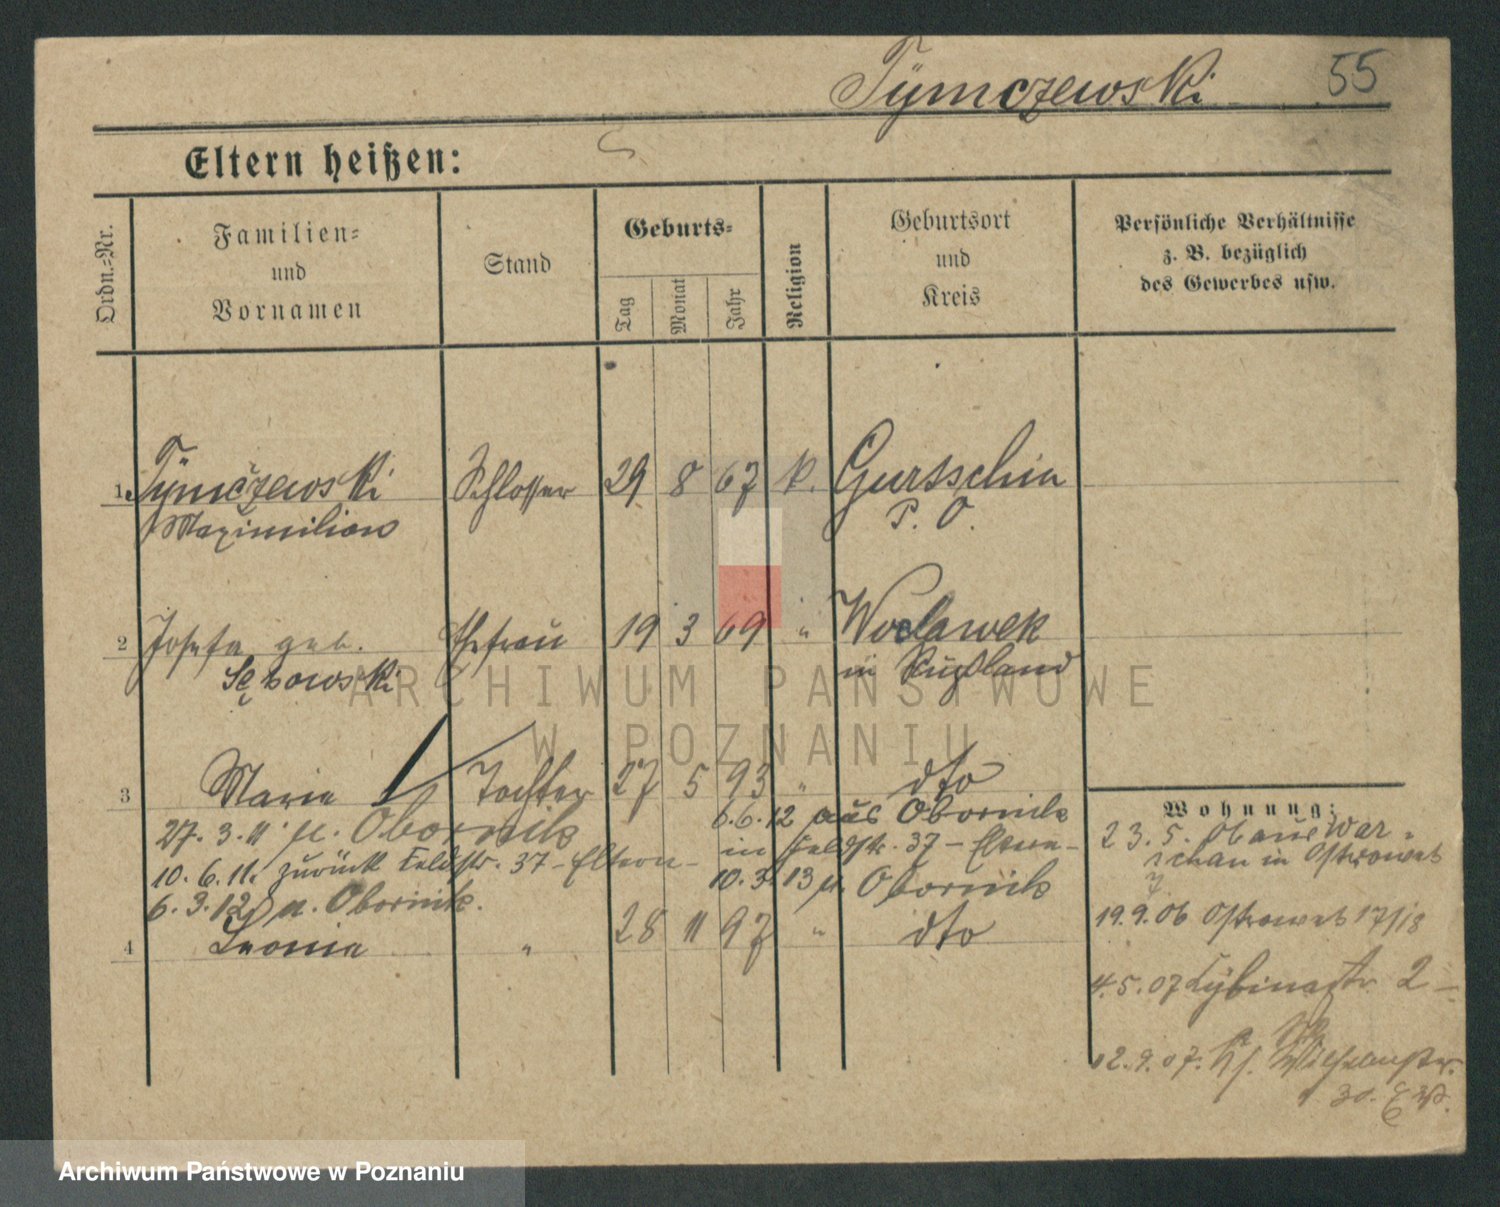 Tymczewski 55
Eltern heißen:
Ordn.-Nr.
Familien-
und
Vornamen
Stand
Geburts-
Tag
Monat
Jahr
Religion
Geburtsort
und
Kreis
Persönliche Verhältnisse
z. B. bezüglich
des Gewerbes usw.
1 Tymczewski Schlosser 29 8 67 k. Gurtschin
Maximilian P. O.
2 Josefa geb. Ehefrau 19 3 69 " Woclawek
in Rußland
3 Maria Tochter 27 5 93 " dto
27. 3. 11 n. Obornik
6.6.12 aus Obornik
10. 6. 11. zurück Feldstr. 37 - Eltern -
in Feldstr. 37 - Eltern -
10. 3. 13 n. Obornik
6. 3. 12 n. Obornik.
4 Leonia " 28 11 97 " dto
Wohnung:
23. 5.
schau in Ostrowek
7
19. 9. 06 Ostrowek 17/18
4. 5. 07 Cybinastr. 2 -
12. 9. 07.
30.
ARCHIWUM PAŃSTWOWE
W POZNANIU
Archiwum Państwowe w Poznaniu